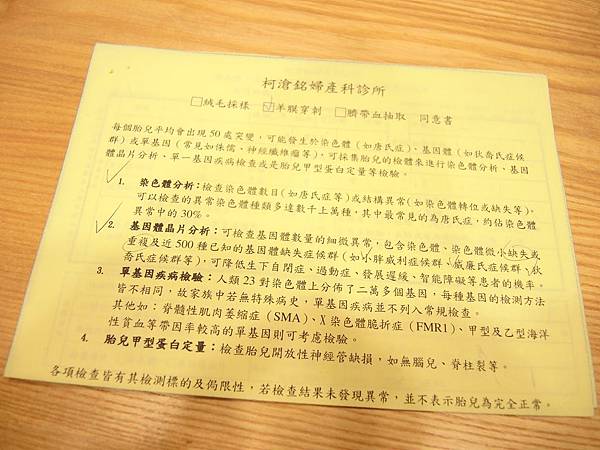 柯滄銘婦產科診所
□絨毛採樣 ☑羊膜穿刺 □臍帶血抽取 同意書
每個胎兒平均會出現 50 處突變,可能發生於染色體(如唐氏症)、基因體(如狄喬氏症候
群)或單基因(常見如侏儒、神經纖維瘤等),可採集胎兒的檢體來進行染色體分析、基因
體晶片分析、單一基因疾病檢查或是胎兒甲型蛋白定量等檢驗。
1. 染色體分析:檢查染色體數目(如唐氏症等)或結構異常(如染色體轉位或缺失等),
可以檢查的異常染色體種類多達數千上萬種,其中最常見的為唐氏症,約佔染色體
異常中的 30%。
2. 基因體晶片分析:可檢查基因體數量的細微異常,包含染色體、染色體微小缺失或
重複及近 500 種已知的基因體缺失症候群(如小胖威利症候群、威廉氏症候群、狄
喬氏症候群等),可降低生下自閉症、過動症、發展遲緩、智能障礙等患者的機率。
3. 單基因疾病檢驗:人類 23 對染色體上分佈了二萬多個基因,每種基因的檢測方法
皆不相同,故家族中若無特殊病史,單基因疾病並不列入常規檢查。
其他如:脊髓性肌肉萎縮症(SMA)、X 染色體脆折症(FMR1)、甲型及乙型海洋
性貧血等帶因率較高的單基因則可考慮檢驗。
4. 胎兒甲型蛋白定量:檢查胎兒開放性神經管缺損,如無腦兒、脊柱裂等。
各項檢查皆有其檢測標的及侷限性,若檢查結果未發現異常,並不表示胎兒為完全正常。